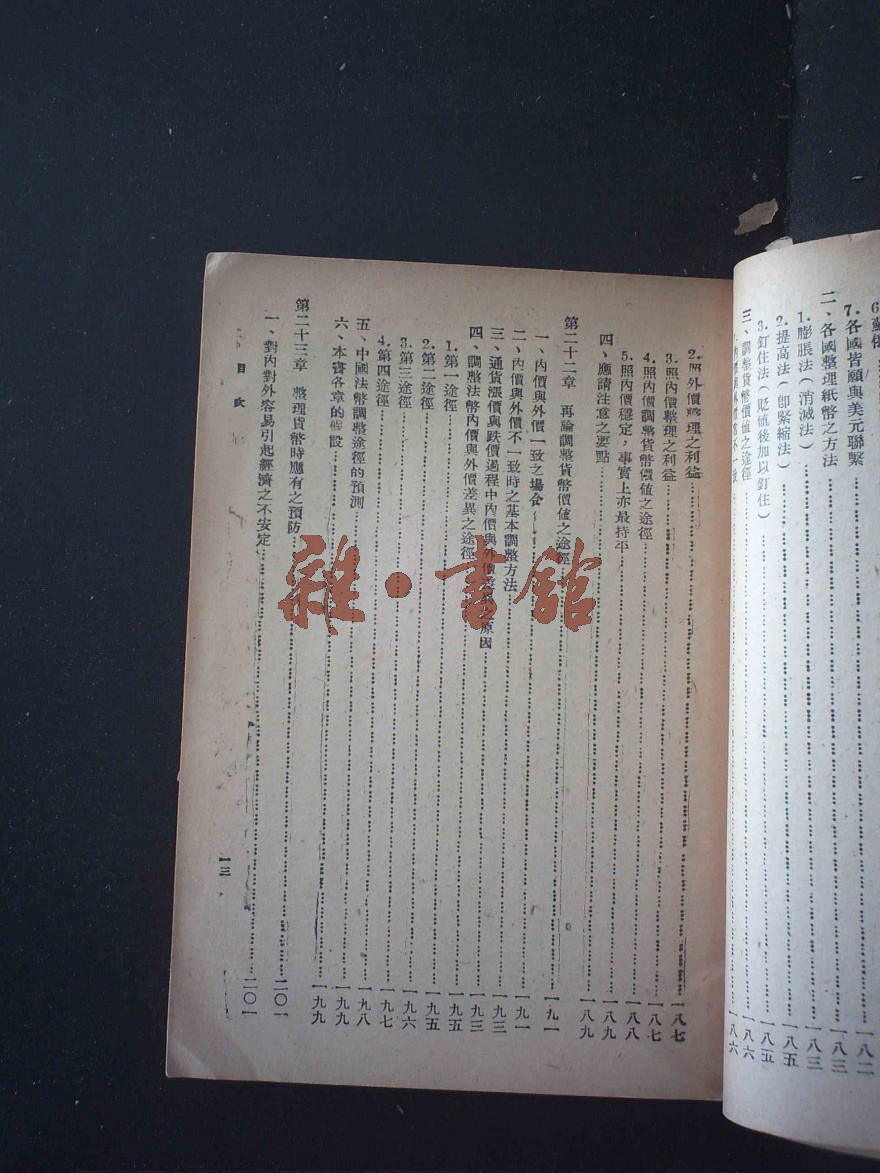 7.各國皆願與美元聯繫……一八二
二、各國整理紙幣之方法……一八三
1.膨脹法(消滅法)……一八三
2.提高法(卽緊縮法)……一八五
3.釘住法(貶値後加以釘住)……一八五
三、調整貨幣價値之途徑……一八六
一八六
2.照外價整理之利益……一八七
3.照內價整理之利益……一八七
4.照內價調整貨幣價値之途徑……一八八
5.照內價穩定，事實上亦最持平……一八九
四、應請注意之要點……一八九
第二十二章 再論調整貨幣價値之途徑……一九一
一、內價與外價一致之場合……一九一
二、內價與外價不一致時之基本調整方法……一九三
三、通貨漲價與跌價過程中內價與外價差異之原因……一九三
四、調整法幣內價與外價差異之途徑……一九五
1.第一途徑……一九五
2.第二途徑……一九六
3.第三途徑……一九七
4.第四途徑……一九八
五、中國法幣調整途徑的預測……一九九
六、本書各章的假設……一九九
第二十三章 整理貨幣時應有之預防……二〇一
一、對內對外容易引起經濟之不安定……二〇一
目次
一三
雜·書館